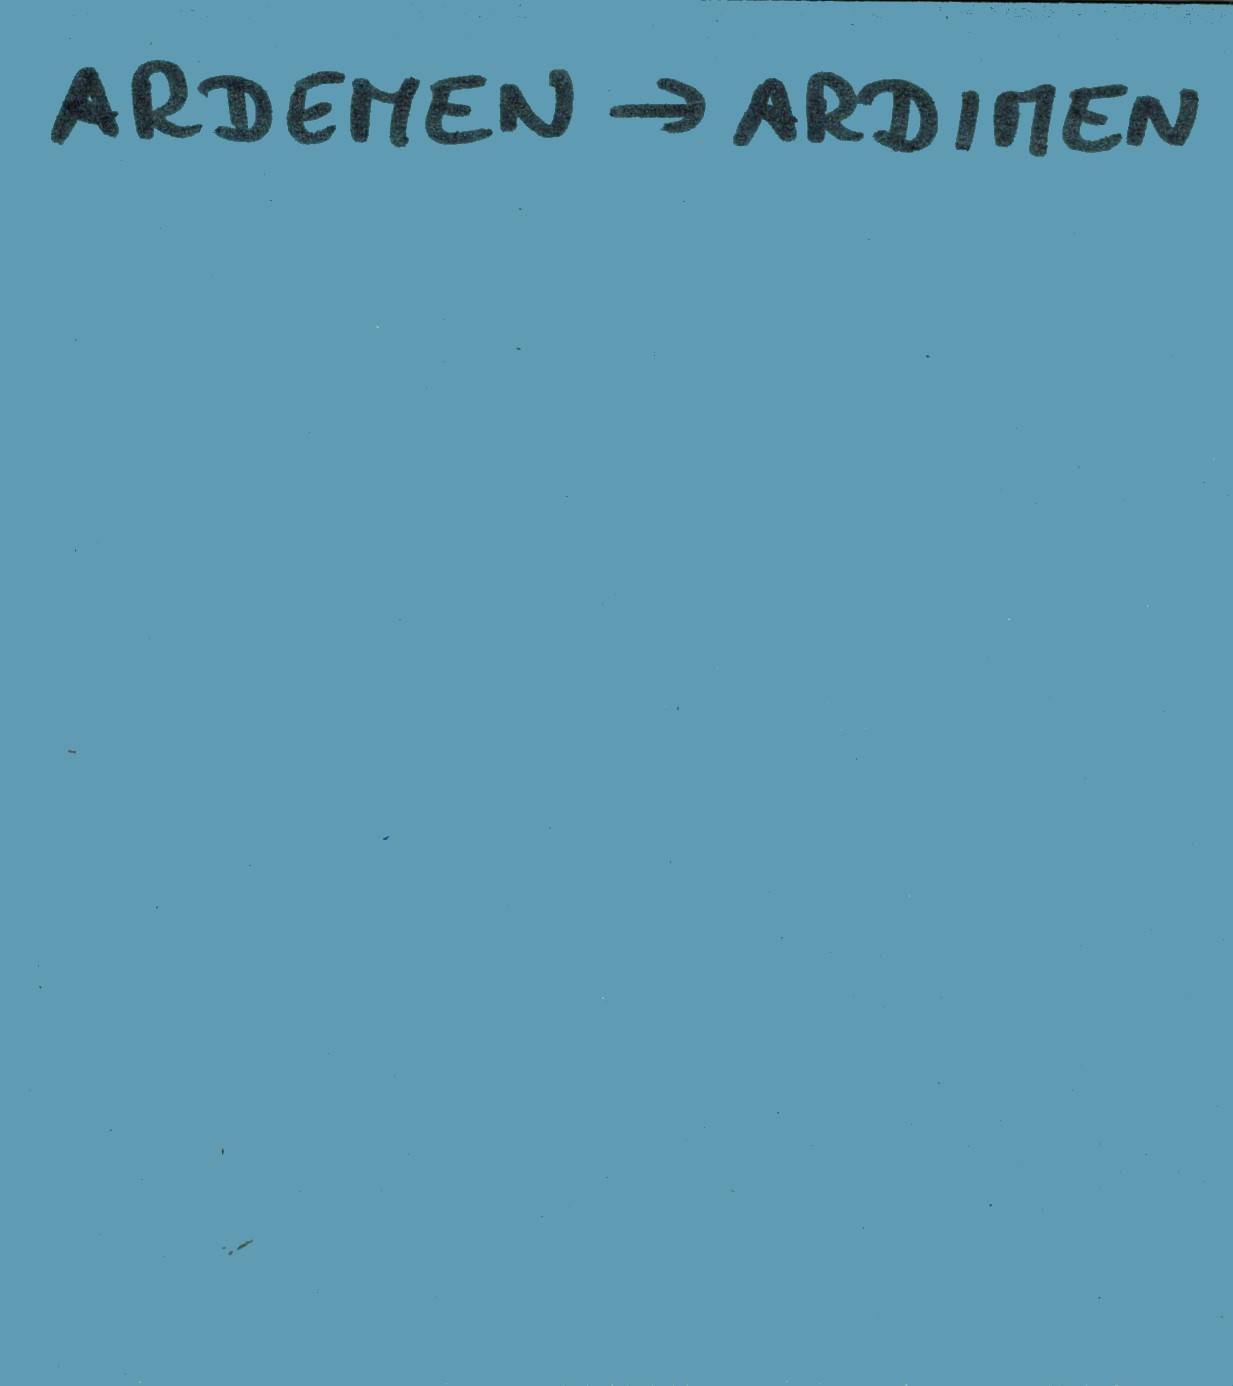 ARDEMEN → ARDIMEN